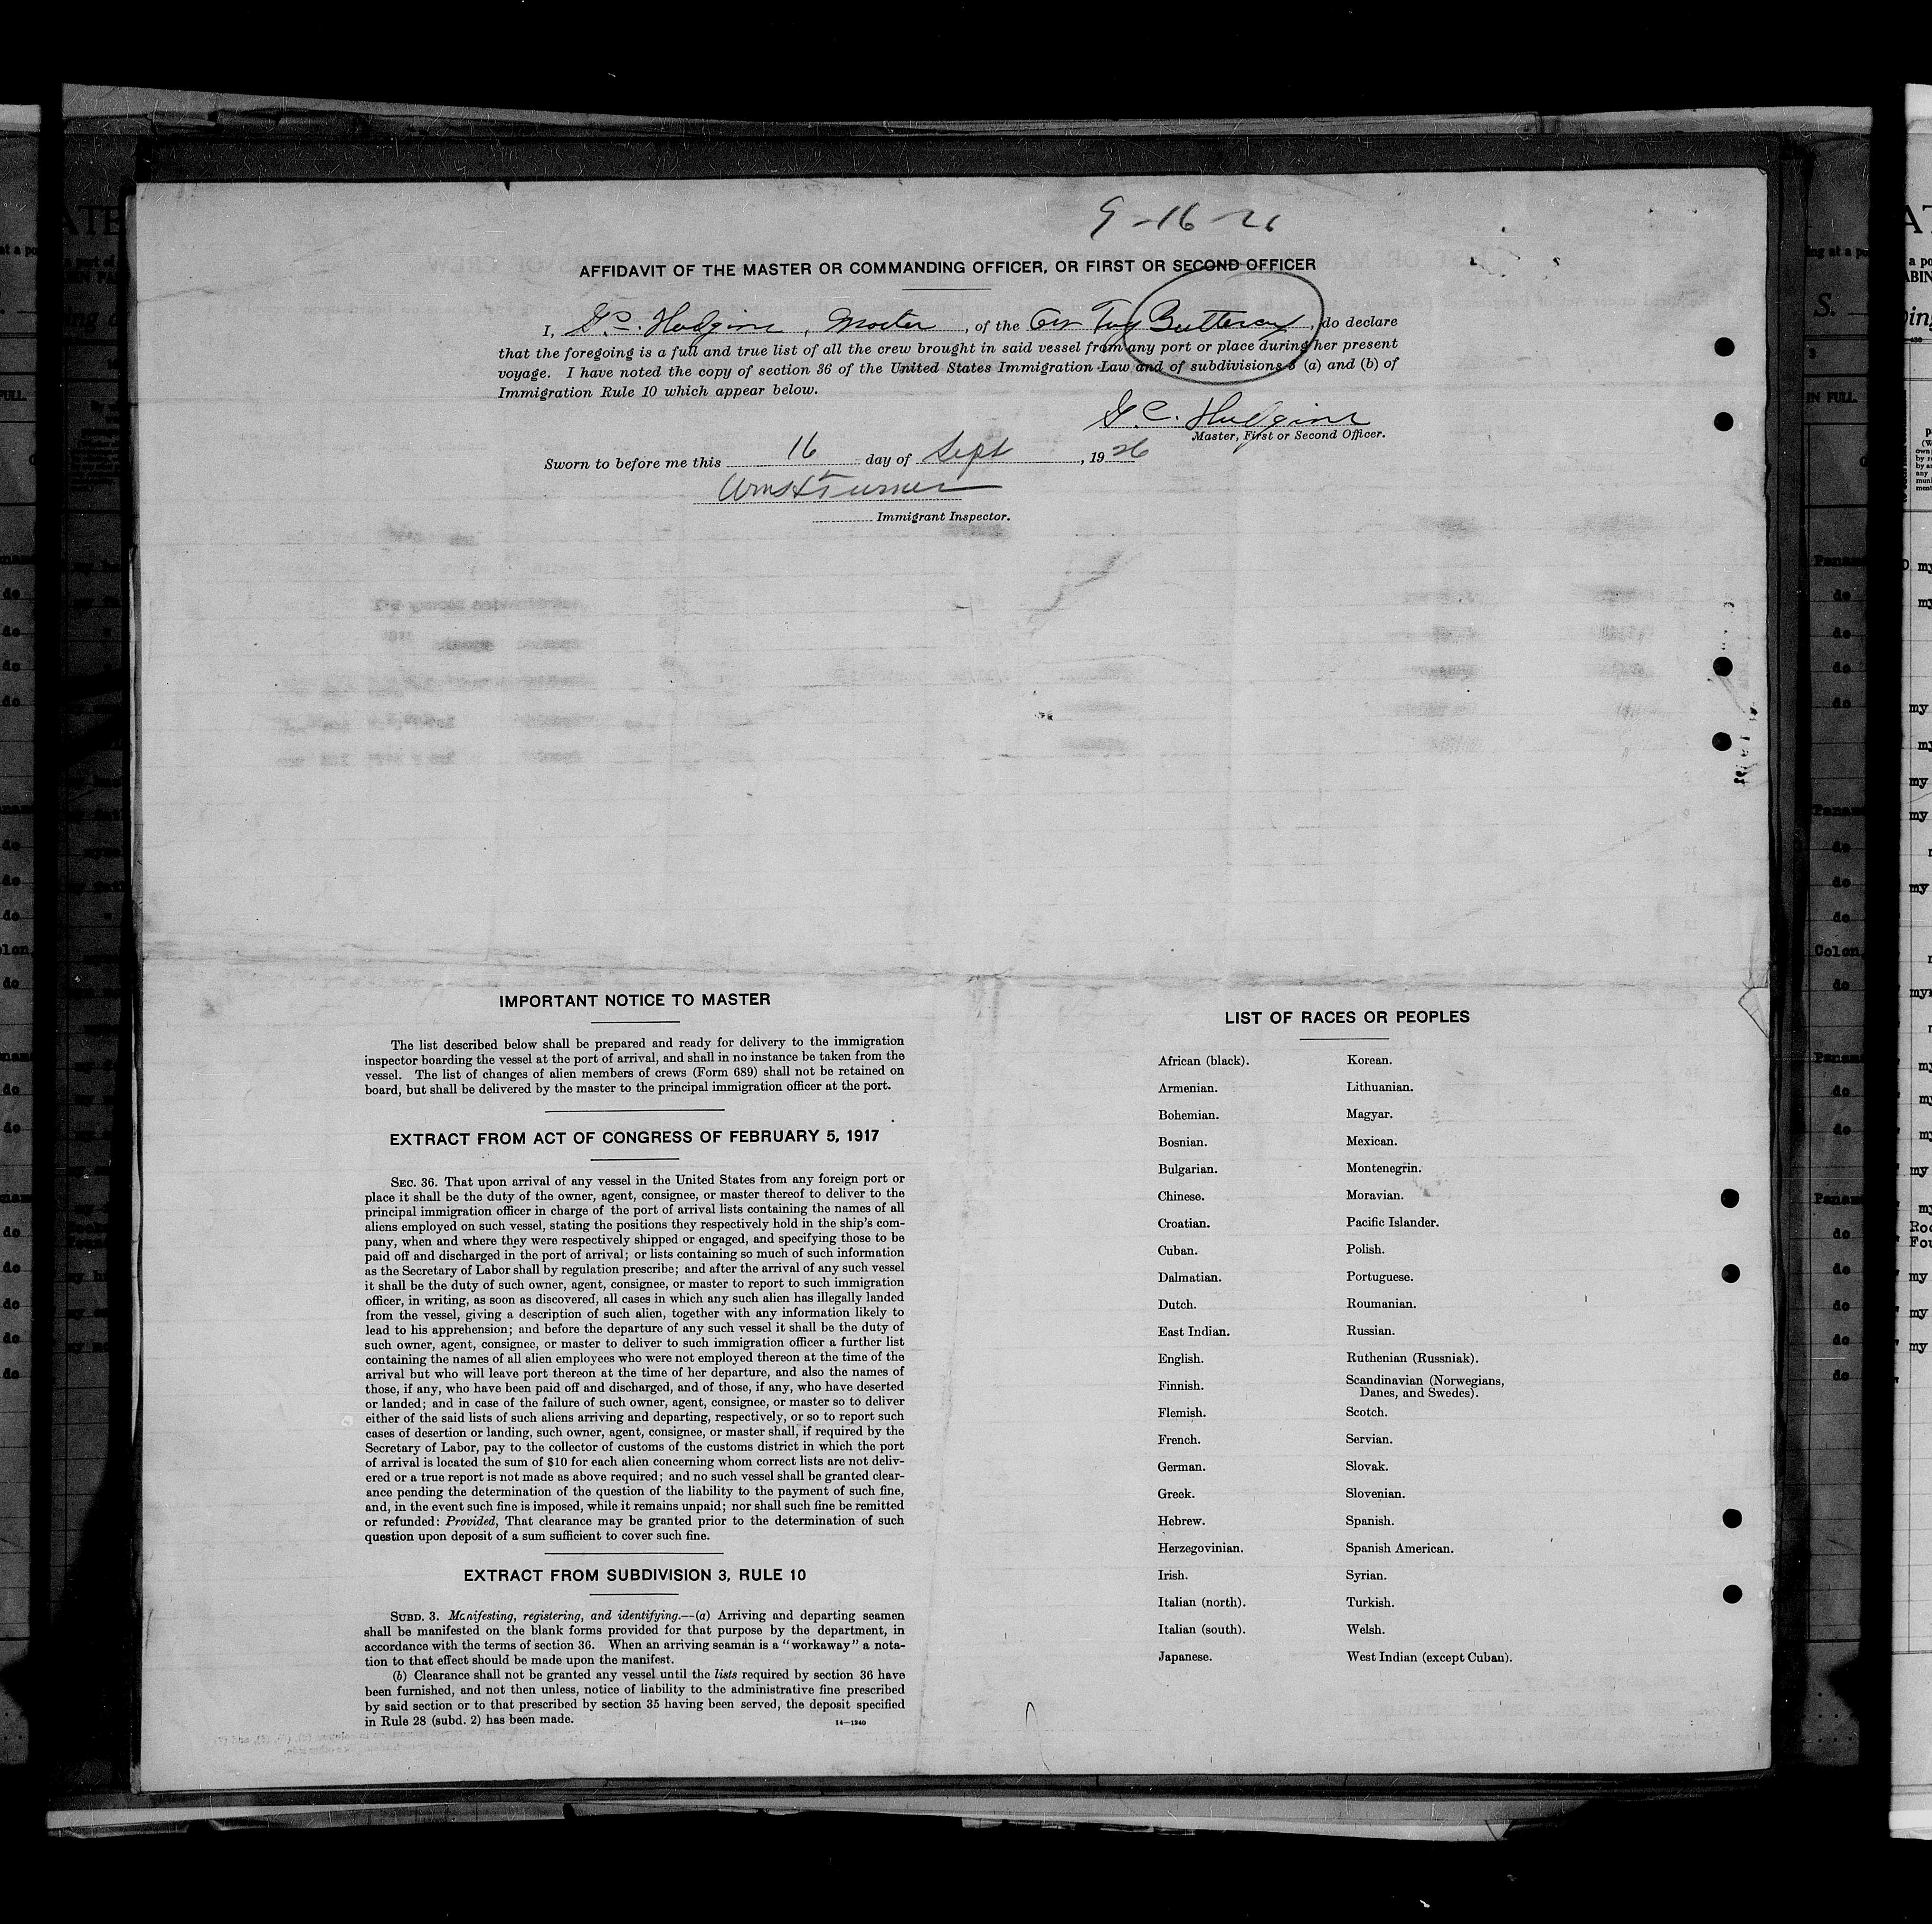 9-16-26
AFFIDAVIT OF THE MASTER OR COMMANDING OFFICER, OR FIRST OR SECOND OFFICER
I, G.C. Hodgins, Master, of the Tug, do declare
that the foregoing is a full and true list of all the crew brought in said vessel from any port or place during her present
voyage. I have noted the copy of section 36 of the United States Immigration Law and of subdivisions 3 (a) and (b) of
Immigration Rule 10 which appear below.
G.C. Hodgins
Master, First or Second Officer.
Sworn to before me this 16 day of Sept, 1926
Turner
Immigrant Inspector.
IMPORTANT NOTICE TO MASTER
The list described below shall be prepared and ready for delivery to the immigration
inspector boarding the vessel at the port of arrival, and shall in no instance be taken from the
vessel. The list of changes of alien members of crews (Form 689) shall not be retained on
board, but shall be delivered by the master to the principal immigration officer at the port.
EXTRACT FROM ACT OF CONGRESS OF FEBRUARY 5, 1917
SEC. 36. That upon arrival of any vessel in the United States from any foreign port or
place it shall be the duty of the owner, agent, consignee, or master thereof to deliver to the
principal immigration officer in charge of the port of arrival lists containing the names of all
aliens employed on such vessel, stating the positions they respectively hold in the ship's com-
pany, when and where they were respectively shipped or engaged, and specifying those to be
paid off and discharged in the port of arrival; or lists containing so much of such information
as the Secretary of Labor shall by regulation prescribe; and after the arrival of any such vessel
it shall be the duty of such owner, agent, consignee, or master to report to such immigration
officer, in writing, as soon as discovered, all cases in which any such alien has illegally landed
from the vessel, giving a description of such alien, together with any information likely to
lead to his apprehension; and before the departure of any such vessel it shall be the duty of
such owner, agent, consignee, or master to deliver to such immigration officer a further list
containing the names of all alien employees who were not employed thereon at the time of the
arrival but who will leave port thereon at the time of her departure, and also the names of
those, if any, who have been paid off and discharged, and of those, if any, who have deserted
or landed; and in case of the failure of such owner, agent, consignee, or master so to deliver
either of the said lists of such aliens arriving and departing, respectively, or so to report such
cases of desertion or landing, such owner, agent, consignee, or master shall, if required by the
Secretary of Labor, pay to the collector of customs of the customs district in which the port
of arrival is located the sum of $10 for each alien concerning whom correct lists are not deliv-
ered or a true report is not made as above required; and no such vessel shall be granted clear-
ance pending the determination of the question of the liability to the payment of such fine,
and, in the event such fine is imposed, while it remains unpaid; nor shall such fine be remitted
or refunded: Provided, That clearance may be granted prior to the determination of such
question upon deposit of a sum sufficient to cover such fine.
EXTRACT FROM SUBDIVISION 3, RULE 10
SUBD. 3. Manifesting, registering, and identifying.—(a) Arriving and departing seamen
shall be manifested on the blank forms provided for that purpose by the department, in
accordance with the terms of section 36. When an arriving seaman is a "workaway" a nota-
tion to that effect should be made upon the manifest.
(b) Clearance shall not be granted any vessel until the lists required by section 36 have
been furnished, and not then unless, notice of liability to the administrative fine prescribed
by said section or to that prescribed by section 35 having been served, the deposit specified
in Rule 28 (subd. 2) has been made.
14—1240
LIST OF RACES OR PEOPLES
African (black).
Armenian.
Bohemian.
Bosnian.
Bulgarian.
Chinese.
Croatian.
Cuban.
Dalmatian.
Dutch.
East Indian.
English.
Finnish.
Flemish.
French.
German.
Greek.
Hebrew.
Herzegovinian.
Irish.
Italian (north).
Italian (south).
Japanese.
Korean.
Lithuanian.
Magyar.
Mexican.
Montenegrin.
Moravian.
Pacific Islander.
Polish.
Portuguese.
Roumanian.
Russian.
Ruthenian (Russniak).
Scandinavian (Norwegians,
Danes, and Swedes).
Scotch.
Servian.
Slovak.
Slovenian.
Spanish.
Spanish American.
Syrian.
Turkish.
Welsh.
West Indian (except Cuban).